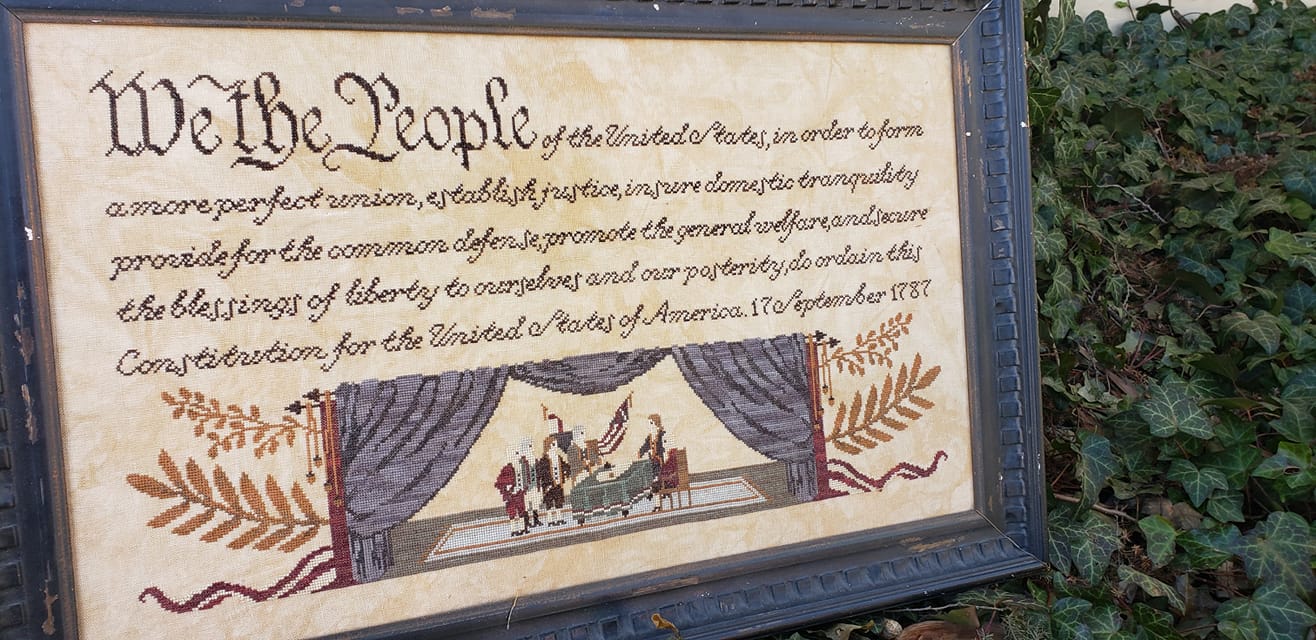 We the People of the United States, in order to form
a more perfect union, establish justice, insure domestic tranquility
provide for the common defense, promote the general welfare, and secure
the blessings of liberty to ourselves and our posterity, do ordain this
Constitution for the United States of America. 17 September 1787